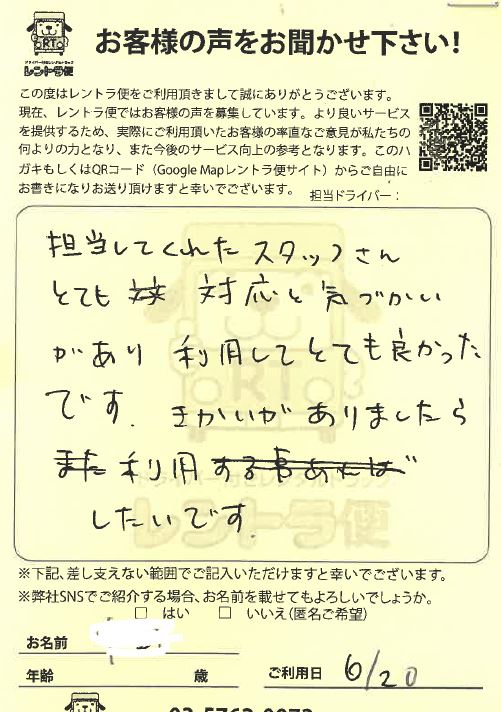 RT
ドライバー付きレンタルトラック
レントラ便
お客様の声をお聞かせ下さい!
この度はレントラ便をご利用頂きまして誠にありがとうございます。
現在、レントラ便ではお客様の声を募集しています。より良いサービス
を提供するため、実際にご利用頂いたお客様の率直なご意見が私たちの
何よりの力となり、また今後のサービス向上の参考となります。このハ
ガキもしくはQRコード（Google Mapレントラ便サイト）からご自由に
お書きになりお送り頂けますと幸いでございます。
担当ドライバー：
担当してくれた スタッフさん
とても 対応と気づかい
があり 利用してとても良かった
です. きかいがありましたら
また利用する事あれば
したいです.
RT
ドライバー付きレンタルトラック
レントラ便
※下記、差し支えない範囲でご記入いただけますと幸いでございます。
※弊社SNSでご紹介する場合、お名前を載せてもよろしいでしょうか。
□ はい □ いいえ(匿名ご希望)
お名前
年齢 歳
ご利用日 6/20